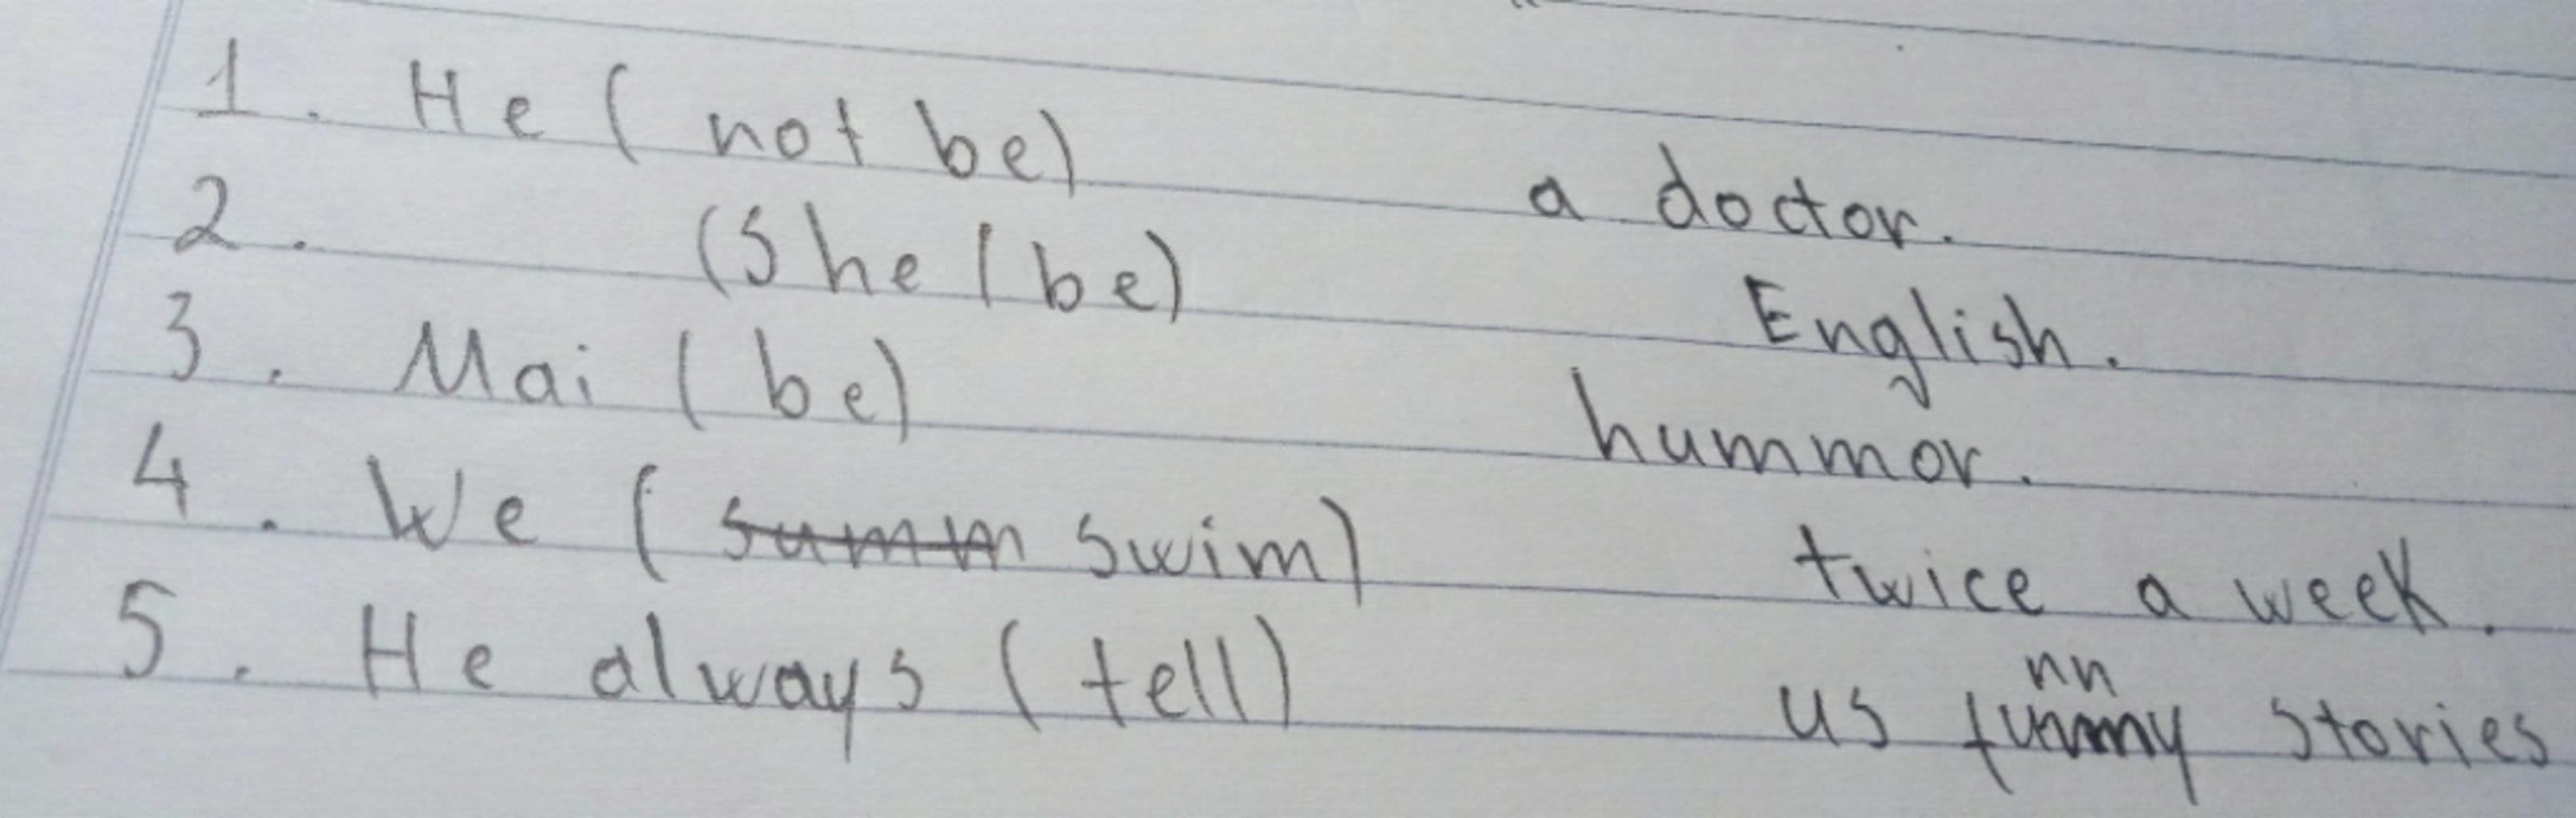 1. He (not be) a doctor.
2. (She / be) English.
3. Mai (be) hummor.
4. We (summ swim) twice a week.
5. He always (tell) us funny stories